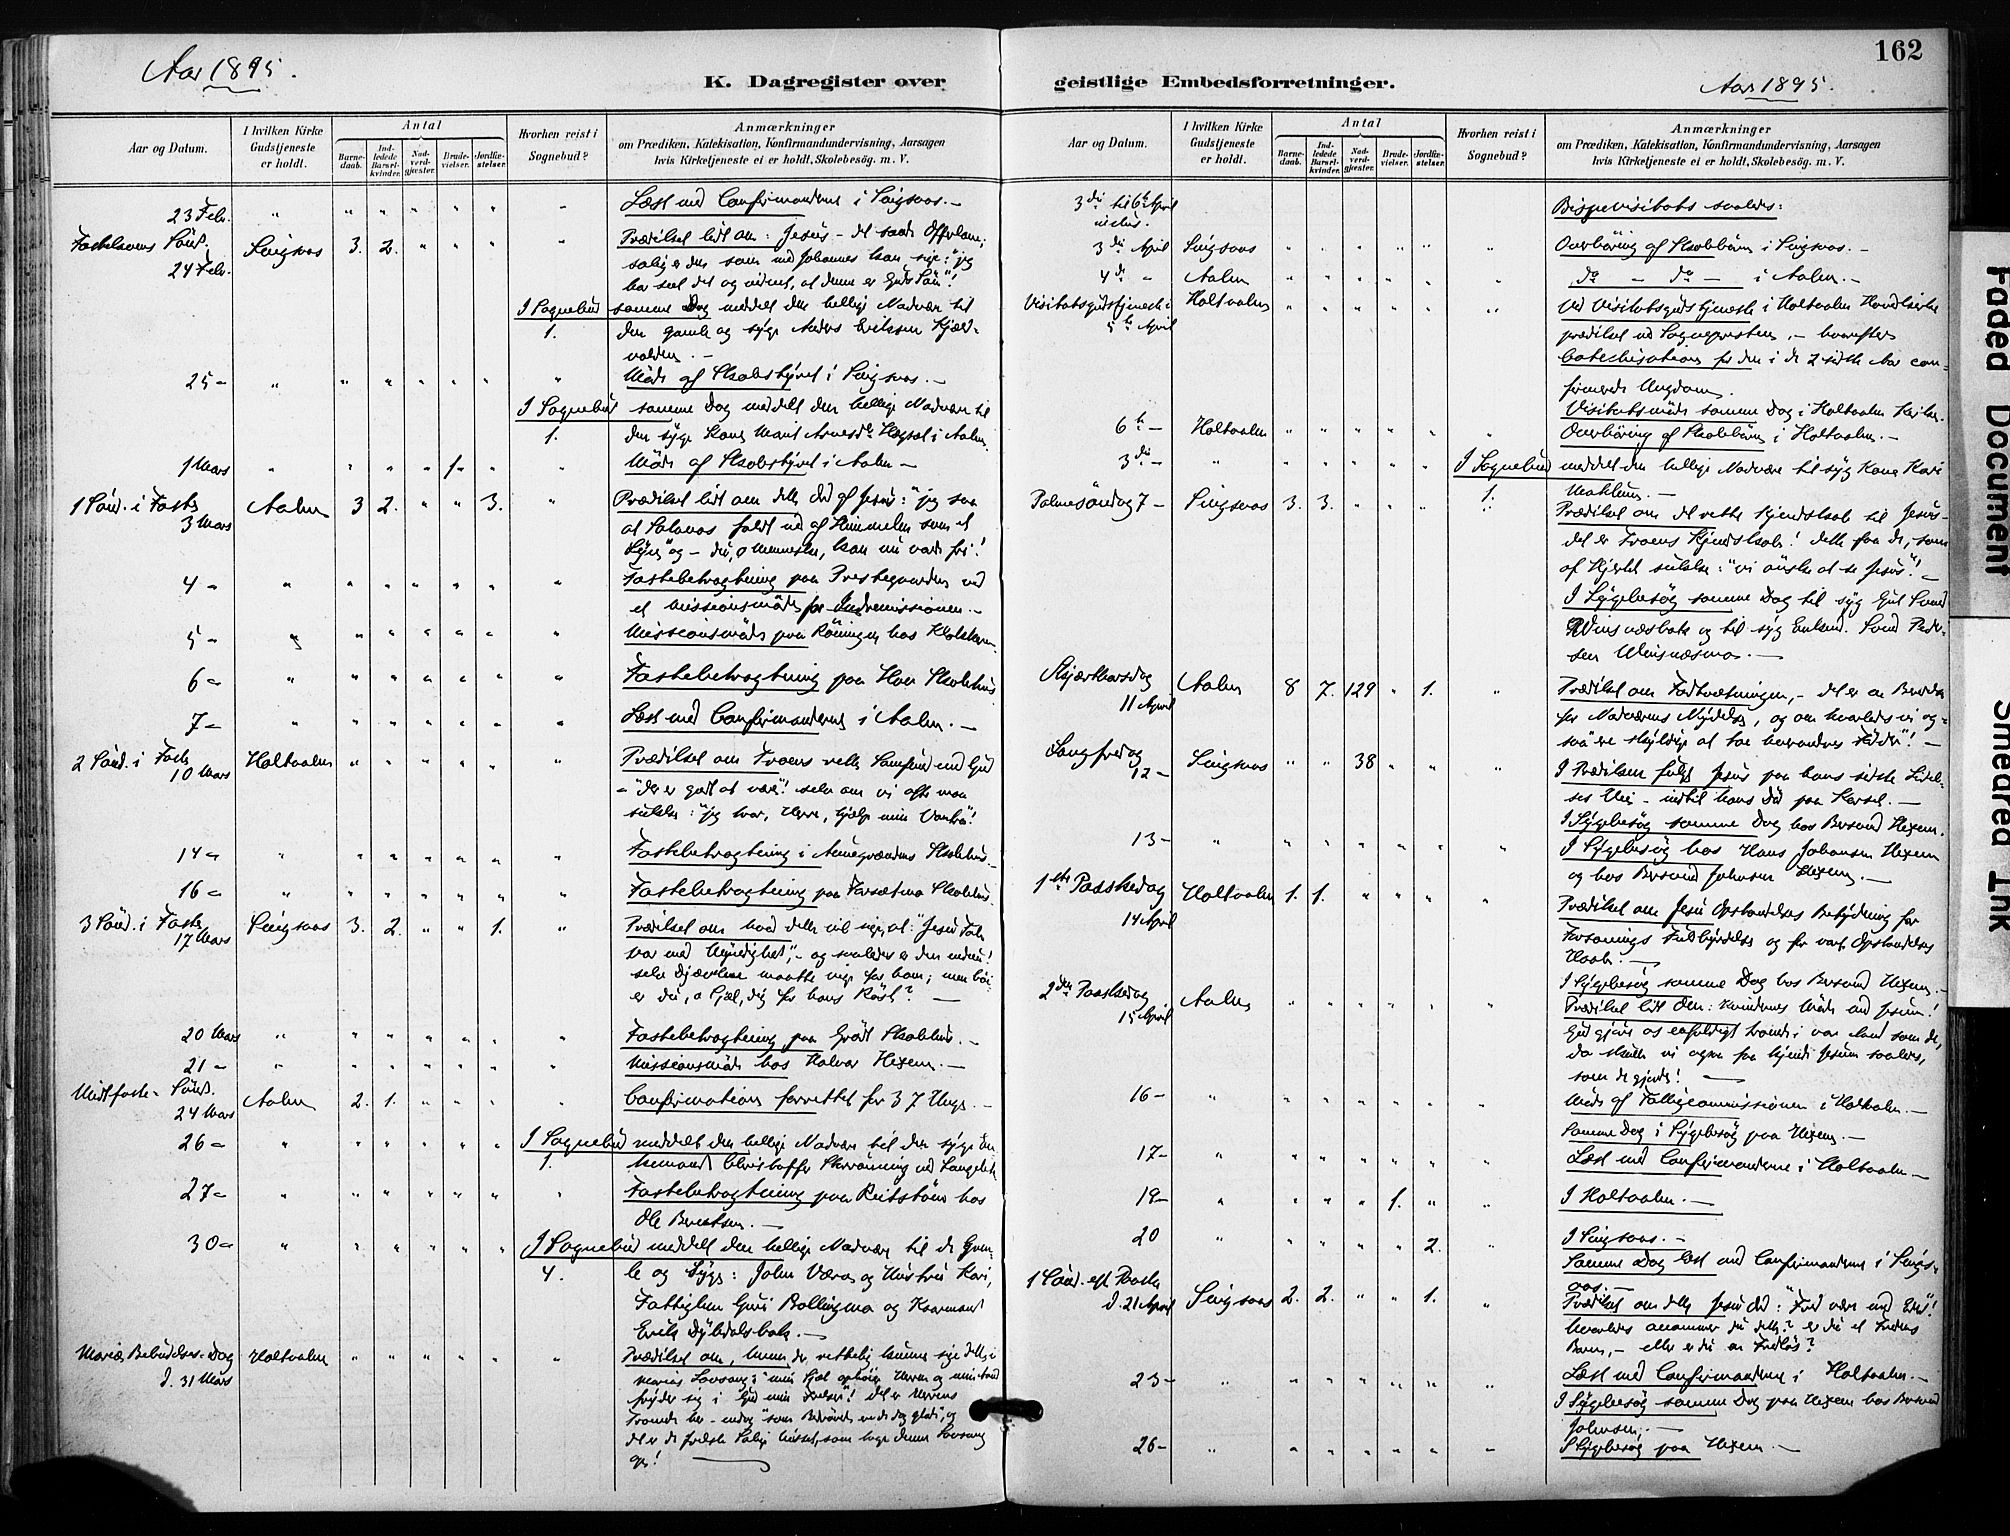 Aar 1895.
K. Dagregister over
Aar og Datum.
I hvilken Kirke Gudstjeneste er holdt.
Antal
Barne-daab.
Ind-ledede Barsel-kvinder.
Nad-verd-gjester.
Brude-vielser.
Jordfæ-stelser.
Hvorhen reist i Sognebud?
Anmærkninger
om Prædiken, Katekisation, Konfirmandundervisning, Aarsagen
hvis Kirketjeneste ei er holdt, Skolebesög. m. V.
23 Febr. " " " " " " " Læst med Confirmanderne i Singsaas. -
Fastelavens Sönd. 24 Febr. Singsaas 3. 2. " " " " Prædiket lidt om: Jesus - det sande Offerlam;
salig er den som med Johannes kan sige: "jeg
har seet det og vidnet, at denne er Guds Sön"!
I Sognebud samme Dag meddelt den hellige Nadvere til
1. den gamle og syge Anders Eriksen Kjæl-
volden. -
25 - " " " " " " " Möde af Skolestyret i Singsaas. -
I Sognebud samme Dag meddelt den hellige Nadvere til
1. den syge Kone Marit Arnesdtr. i Aalen.
1 Mars " " " " 1 " " Möde af Skolestyret i Aalen -
1 Sönd. i Faste 3 Mars Aalen 3 2. " " 3. " Prædiket lidt om dette Ord af Jesus: "jeg saa
at Satanas faldt ned af Himmelen som et
Lyn" og - du, o Menneske, kan nu være fri!
4 - " " " " " " " Fastebetragtning paa Prestegaarden ved
et Missionsmöde for Indremissionen. -
5 - " " " " " " " Missionsmöde paa Röningen hos
6 - " " " " " " " Fastebetragtning paa Hov Skolehus
7 - " " " " " " " Læst med Confirmanderne i Aalen. -
2 Sönd. i Faste 10 Mars Holtaalen " " " " " " Prædiket om Troens rette Samfund med Gud
- "der er godt at være"! selv om vi ofte maa
sukke: "jeg tror, Herre, hjælp min Vantro"!
14 - " " " " " " " Fastebetragtning i Skolehus. -
16 - " " " " " " " Fastebetragtning paa Forsætmo Skolehus.
3 Sönd. i Faste 17 Mars Singsaas 3. 2. " " 1. " Prædiket om hvad dette vil sige, at: "Jesu Tale
var med Myndighed", - og saaledes er den endnu!
selv Djævlene maatte vige for ham; men böi-
er du, o Sjæl, dig for hans Röst? -
20 Mars " " " " " " " Fastebetragtning paa Gröt Skolehus. -
21 - " " " " " " " Missionsmöde hos Halvor Hexem. -
Midtfaste-Sönd. 24 Mars Aalen 2. 1. " " " " Confirmation forrettet for 37 Unge. -
26 - " " " " " " I Sognebud meddelt den hellige Nadvere til den syge En-
1. kemand Christoffer ved
27 - " " " " " " " Fastebetragtning paa Reitstöen hos
Ole Berntsen. -
30 - " " " " " " I Sognebud meddelt den hellige Nadvere til de Gam-
4. le og Syge: John Væraas og Hustru Kari,
Fattiglem Guri Bollingmo og Kaarmand
Erik Dybdalsbak. -
Mariæ Bebudelses-Dag d. 31 Mars Holtaalen " " " " " " Prædiket om, hvem der rettelig kunne sige dette i
Marias Lovsang: "min Sjæl ophöier Herren og min Aand
fryder sig i Gud min Frelser"! det er Herrens
Troende her - endog "som Bedrövede endda dog glade", og
det er de frelste Salige hisset, som tage denne Lovsang
op! -
162
geistlige Embedsforretninger.
Aar 1895.
Aar og Datum.
I hvilken Kirke Gudstjeneste er holdt.
Antal
Barne-daab.
Ind-ledede Barsel-kvinder.
Nad-verd-gjester.
Brude-vielser.
Jordfæ-stelser.
Hvorhen reist i Sognebud?
Anmærkninger
om Prædiken, Katekisation, Konfirmandundervisning, Aarsagen
hvis Kirketjeneste ei er holdt, Skolebesög. m. V.
3die til 6te April inclus. Bispevisitats saaledes:
3die April Singsaas " " " " " " Overhöring af Skolebörn i Singsaas. -
4de - Aalen " " " " " " do - do - i Aalen. -
Visitatsgudstjeneste i 5te April Holtaalen " " " " " " Ved Visitatsgudstjeneste i Holtaalen Hovedkirke
prædiket ved Sognepresten, - hvorefter
Catechisation for den i de 2 sidste Aar con-
firmerede Ungdom.
Visitatsmöde samme Dag i Holtaalen Kirke.
6te - Holtaalen " " " " " " Overhöring af Skolebörn i Holtaalen. -
3die - " " " " " " I Sognebud meddelt den hellige Nadvere til syg Kone Kari
1. -
Palmesöndag 7 - Singsaas 3. 3. " " " " Prædiket om det rette Kjendskab til Jesus -
det er Troens Kjendskab! dette faa de, som
af Hjertet sukke: "vi önske at se Jesus"! -
I Sygebesög samme Dag til syg
og til syg Enkemd. Sivert Peder-
sen Winsnæsmo. -
Skjærthorsdag 11 April Aalen 8 7. 129 " 1. " Prædiket om Fodtvætningen, - det er en Beredelse
for Nadverens Nydelse, og om hvorledes vi og-
saa "ere skyldige at toe hverandres Födder"! -
Langfredag 12 - Singsaas " " 38 " " " I Prædiken fulgt Jesus paa hans sidste Lidel-
ses Vei - indtil hans Död paa Korset. -
I Sygebesög samme Dag hos Hexem.
13 - " " " " " " " I Sygebesög hos Hans Johansen Hexem
og hos Johnsen Hexem. -
1ste Paaskedag 14 April Holtaalen 1. 1. " " " " Prædiket om Jesu Opstandelses Betydning for
Forsonings Fuldbyrdelse og for vort Opstandelses
Haab. -
I Sygebesög samme Dag hos Hexem. -
2den Paaskedag 15 April Aalen " " " " " " Prædiket lidt om: Kvindernes Möde med Jesum!
Gud gjöre os enfoldigt troende i vor Aand som de,
da skulle vi ogsaa faa kjende Jesum saaledes,
som de gjorde! -
16 - " " " " " " " Möde af Fattigcommissionen i Holtaalen. -
Samme Dag i Sygebesög paa Hexem. -
17 - " " " " " " " Læst med Confirmanderne i Holtaalen -
19 - " " " " 1. " " I Holtaalen. -
20 " " " " " 2. " I Singsaas. -
Samme Dag læst med Confirmanderne i Sings-
aas. -
1 Sönd. eft. Paaske d. 21 April Singsaas 2. 2. " " 1. " Prædiket om dette Jesu Ord: "Fred være med Eder"!
hvorledes anammer du dette? er du et Fredens
Barn, - eller er du en Fredlös?
23 - " " " " " " " Læst med Confirmanderne i Holtaalen. -
I Sygebesög samme Dag paa Hexem hos
Johnsen. -
26 - " " " " " " " I Sygebesög paa Hexem. -
Faded Document
Smeared Ink